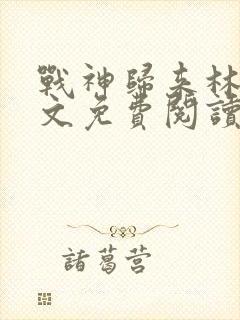 戰神歸來林
文免費閱讀
諸葛营